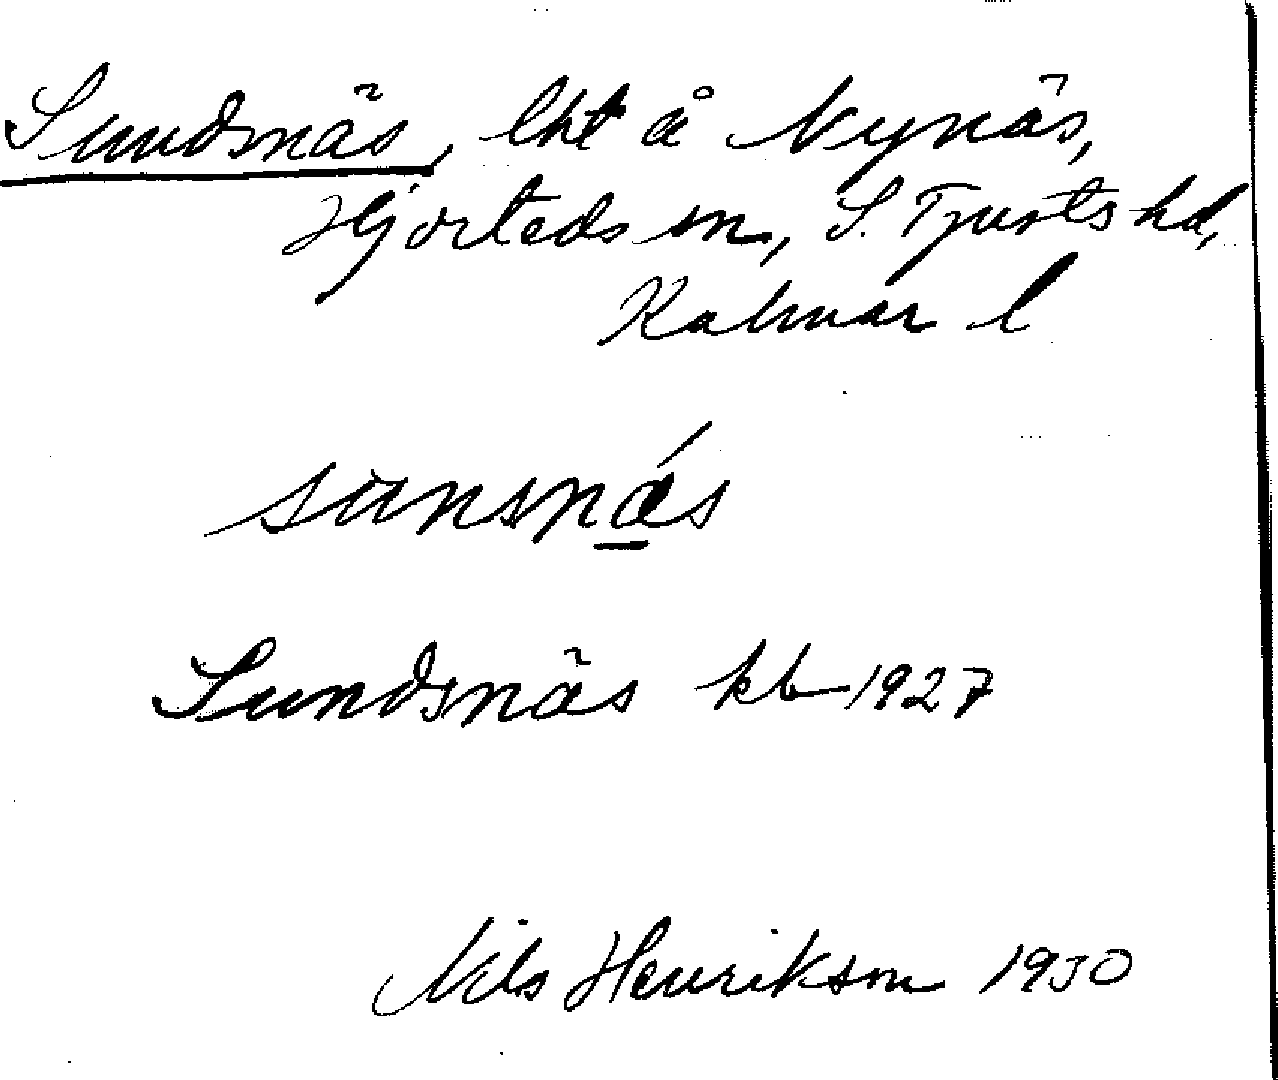 Sundsnäs, lht å Nynäs,
Hjorteds sn, S. Tjusts hd,
Kalmar l
sunsnás
Sundsnäs kb 1927
Nils Henrikson 1930